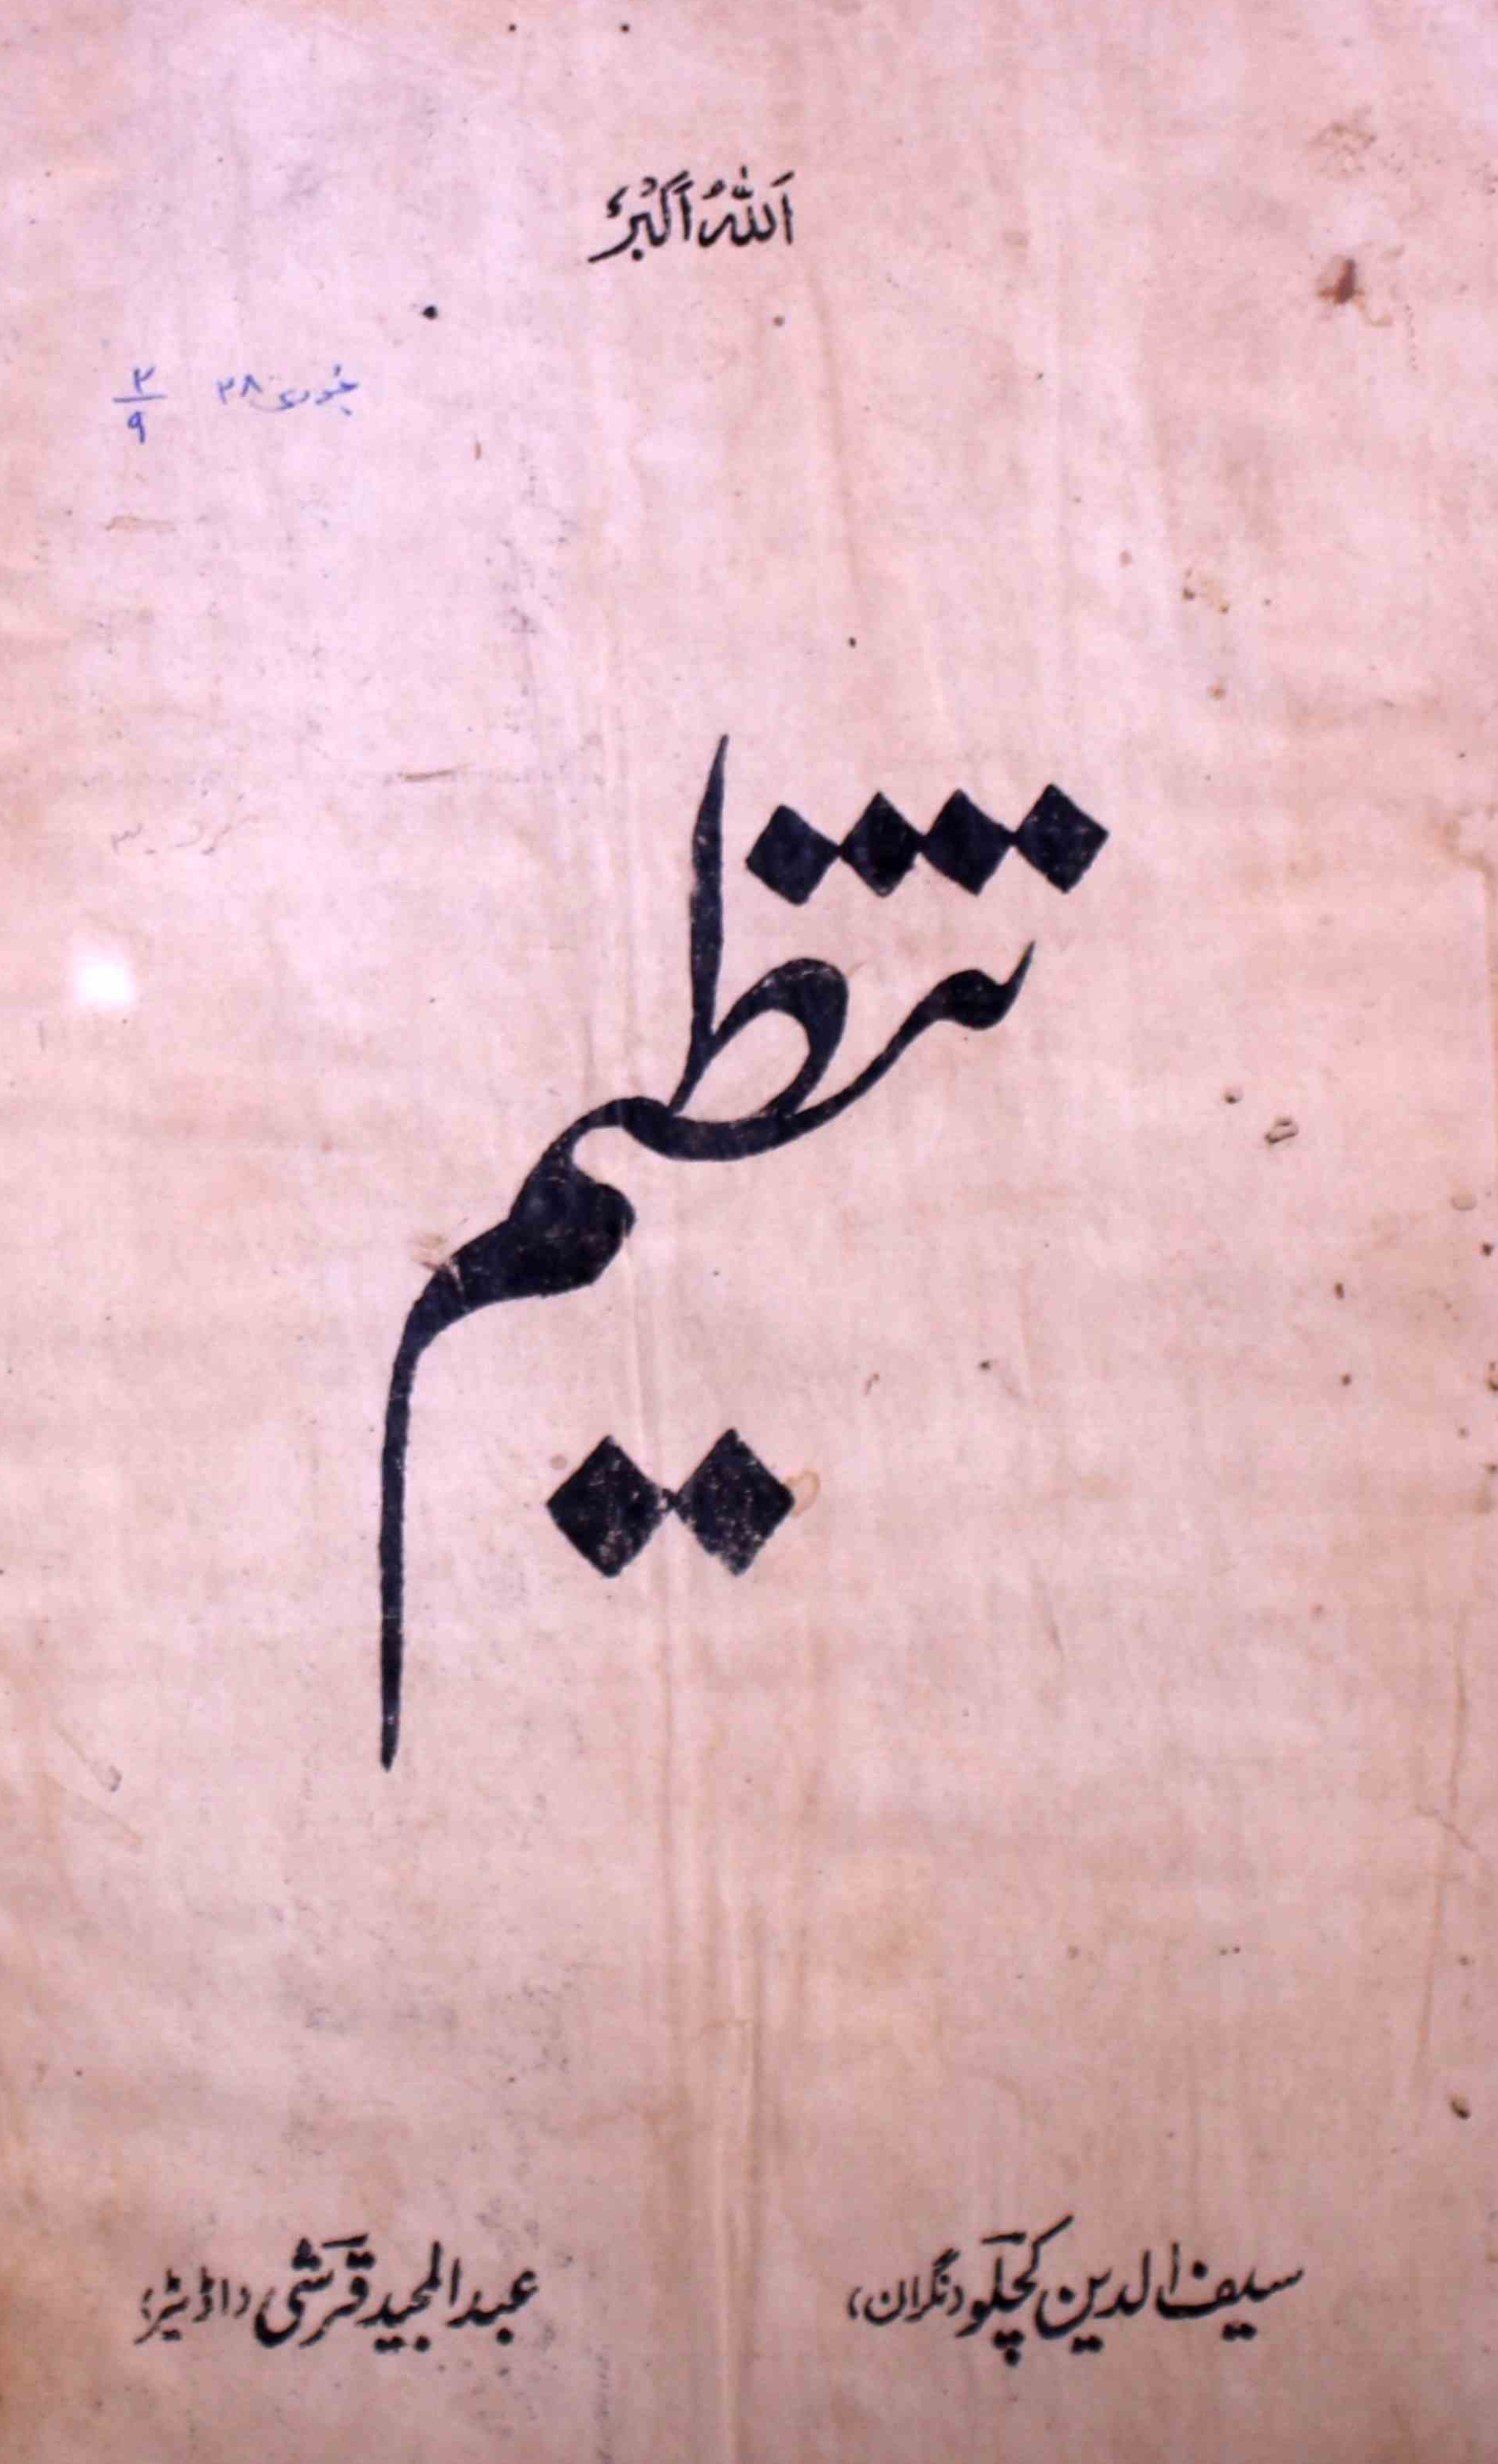 اَللّٰهُ اَكْبَرُ
جنوری ۲۸ ۲/۹
تنظیم
سیف الدین کچلو (نگران)
عبدالمجید قرشی (اڈیٹر)